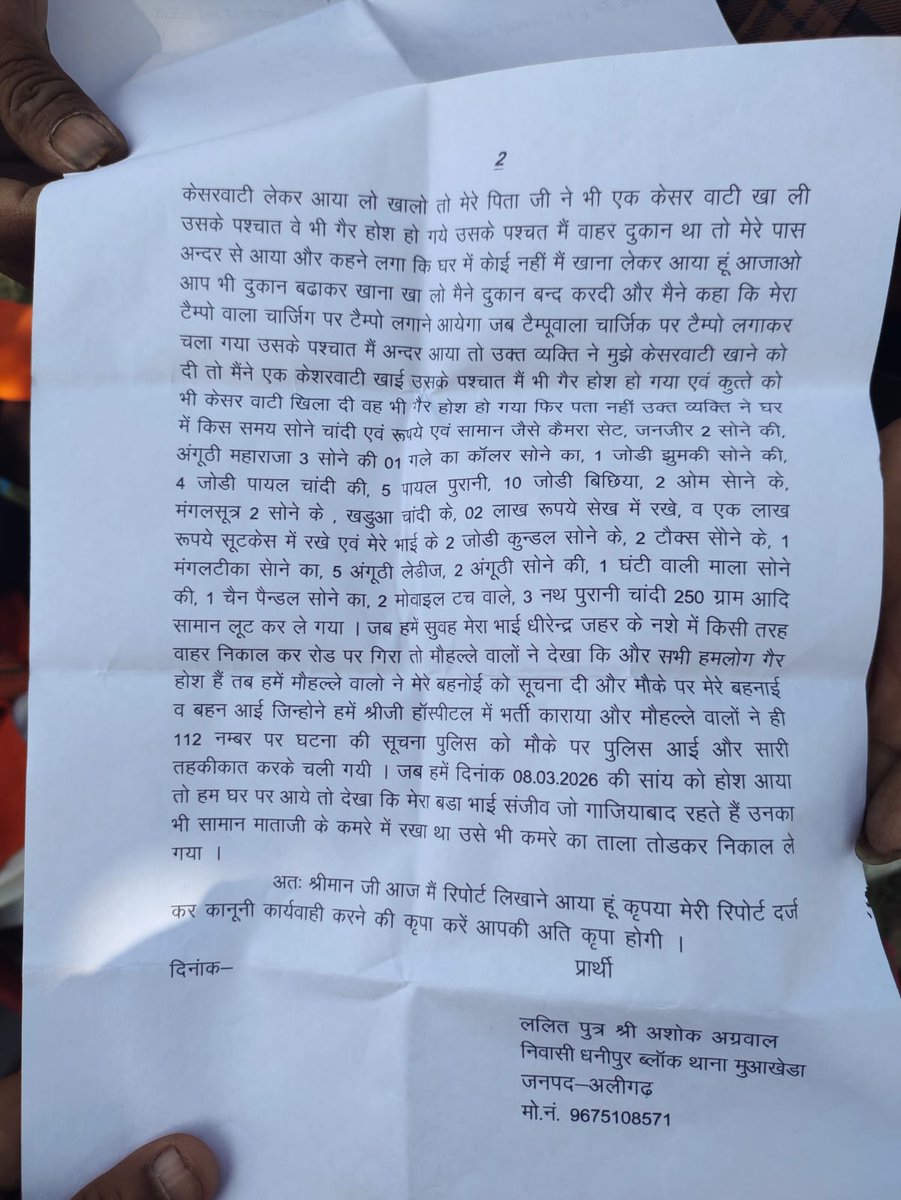 2
केसरवाटी लेकर आया लो खालो तो मेरे पिता जी ने भी एक केसर वाटी खा ली
उसके पश्चात वे भी गैर होश हो गये उसके पश्चत मैं वाहर दुकान था तो मेरे पास
अन्दर से आया और कहने लगा कि घर में केाई नहीं मैं खाना लेकर आया हूं आजाओ
आप भी दुकान बढाकर खाना खा लो मैने दुकान बन्द करदी और मैने कहा कि मेरा
टैम्पो वाला चार्जिग पर टैम्पो लगाने आयेगा जब टैम्पूवाला चार्जिक पर टैम्पो लगाकर
चला गया उसके पश्चात मैं अन्दर आया तो उक्त व्यक्ति ने मुझे केसरवाटी खाने को
दी तो मैंने एक केशरवाटी खाई उसके पश्चात मैं भी गैर होश हो गया एवं कुत्ते को
भी केसर वाटी खिला दी वह भी गैर होश हो गया फिर पता नहीं उक्त व्यक्ति ने घर
में किस समय सोने चांदी एवं रूपये एवं सामान जैसे कैमरा सेट, जनजीर 2 सोने की,
अंगूठी महाराजा 3 सोने की 01 गले का कॉलर सोने का, 1 जोडी झुमकी सोने की,
4 जोडी पायल चांदी की, 5 पायल पुरानी, 10 जोडी बिछिया, 2 ओम सेाने के,
मंगलसूत्र 2 सोने के , खडुआ चांदी के, 02 लाख रूपये सेख में रखे, व एक लाख
रूपये सूटकेस में रखे एवं मेरे भाई के 2 जोडी कुन्डल सोने के, 2 टौक्स सौने के, 1
मंगलटीका सेाने का, 5 अंगूठी लेडीज, 2 अंगूठी सोने की, 1 घंटी वाली माला सोने
की, 1 चैन पैन्डल सोने का, 2 मोवाइल टच वाले, 3 नथ पुरानी चांदी 250 ग्राम आदि
सामान लूट कर ले गया । जब हमें सुवह मेरा भाई धीरेन्द्र जहर के नशे में किसी तरह
वाहर निकाल कर रोड पर गिरा तो मौहल्ले वालों ने देखा कि और सभी हमलोग गैर
होश हैं तब हमें मौहल्ले वालो ने मेरे बहनोई को सूचना दी और मौके पर मेरे बहनाई
व बहन आई जिन्होने हमें श्रीजी हॉस्पीटल में भर्ती काराया और मौहल्ले वालों ने ही
112 नम्बर पर घटना की सूचना पुलिस को मौके पर पुलिस आई और सारी
तहकीकात करके चली गयी । जब हमें दिनांक 08.03.2026 की सांय को होश आया
तो हम घर पर आये तो देखा कि मेरा बडा भाई संजीव जो गाजियाबाद रहते हैं उनका
भी सामान माताजी के कमरे में रखा था उसे भी कमरे का ताला तोडकर निकाल ले
गया ।
अतः श्रीमान जी आज मैं रिपोर्ट लिखाने आया हूं कृपया मेरी रिपोर्ट दर्ज
कर कानूनी कार्यवाही करने की कृपा करें आपकी अति कृपा होगी ।
दिनांक– प्रार्थी
ललित पुत्र श्री अशोक अग्रवाल
निवासी धनीपुर ब्लॉक थाना मुआखेडा
जनपद–अलीगढ़
मो.नं. 9675108571